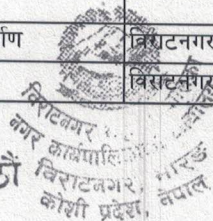 र्माण विराटनगर
विराटनगर
विराटनगर
नगर कार्यपालि
विराटनगर, मोरङ
कोशी प्रदेश, नेपाल